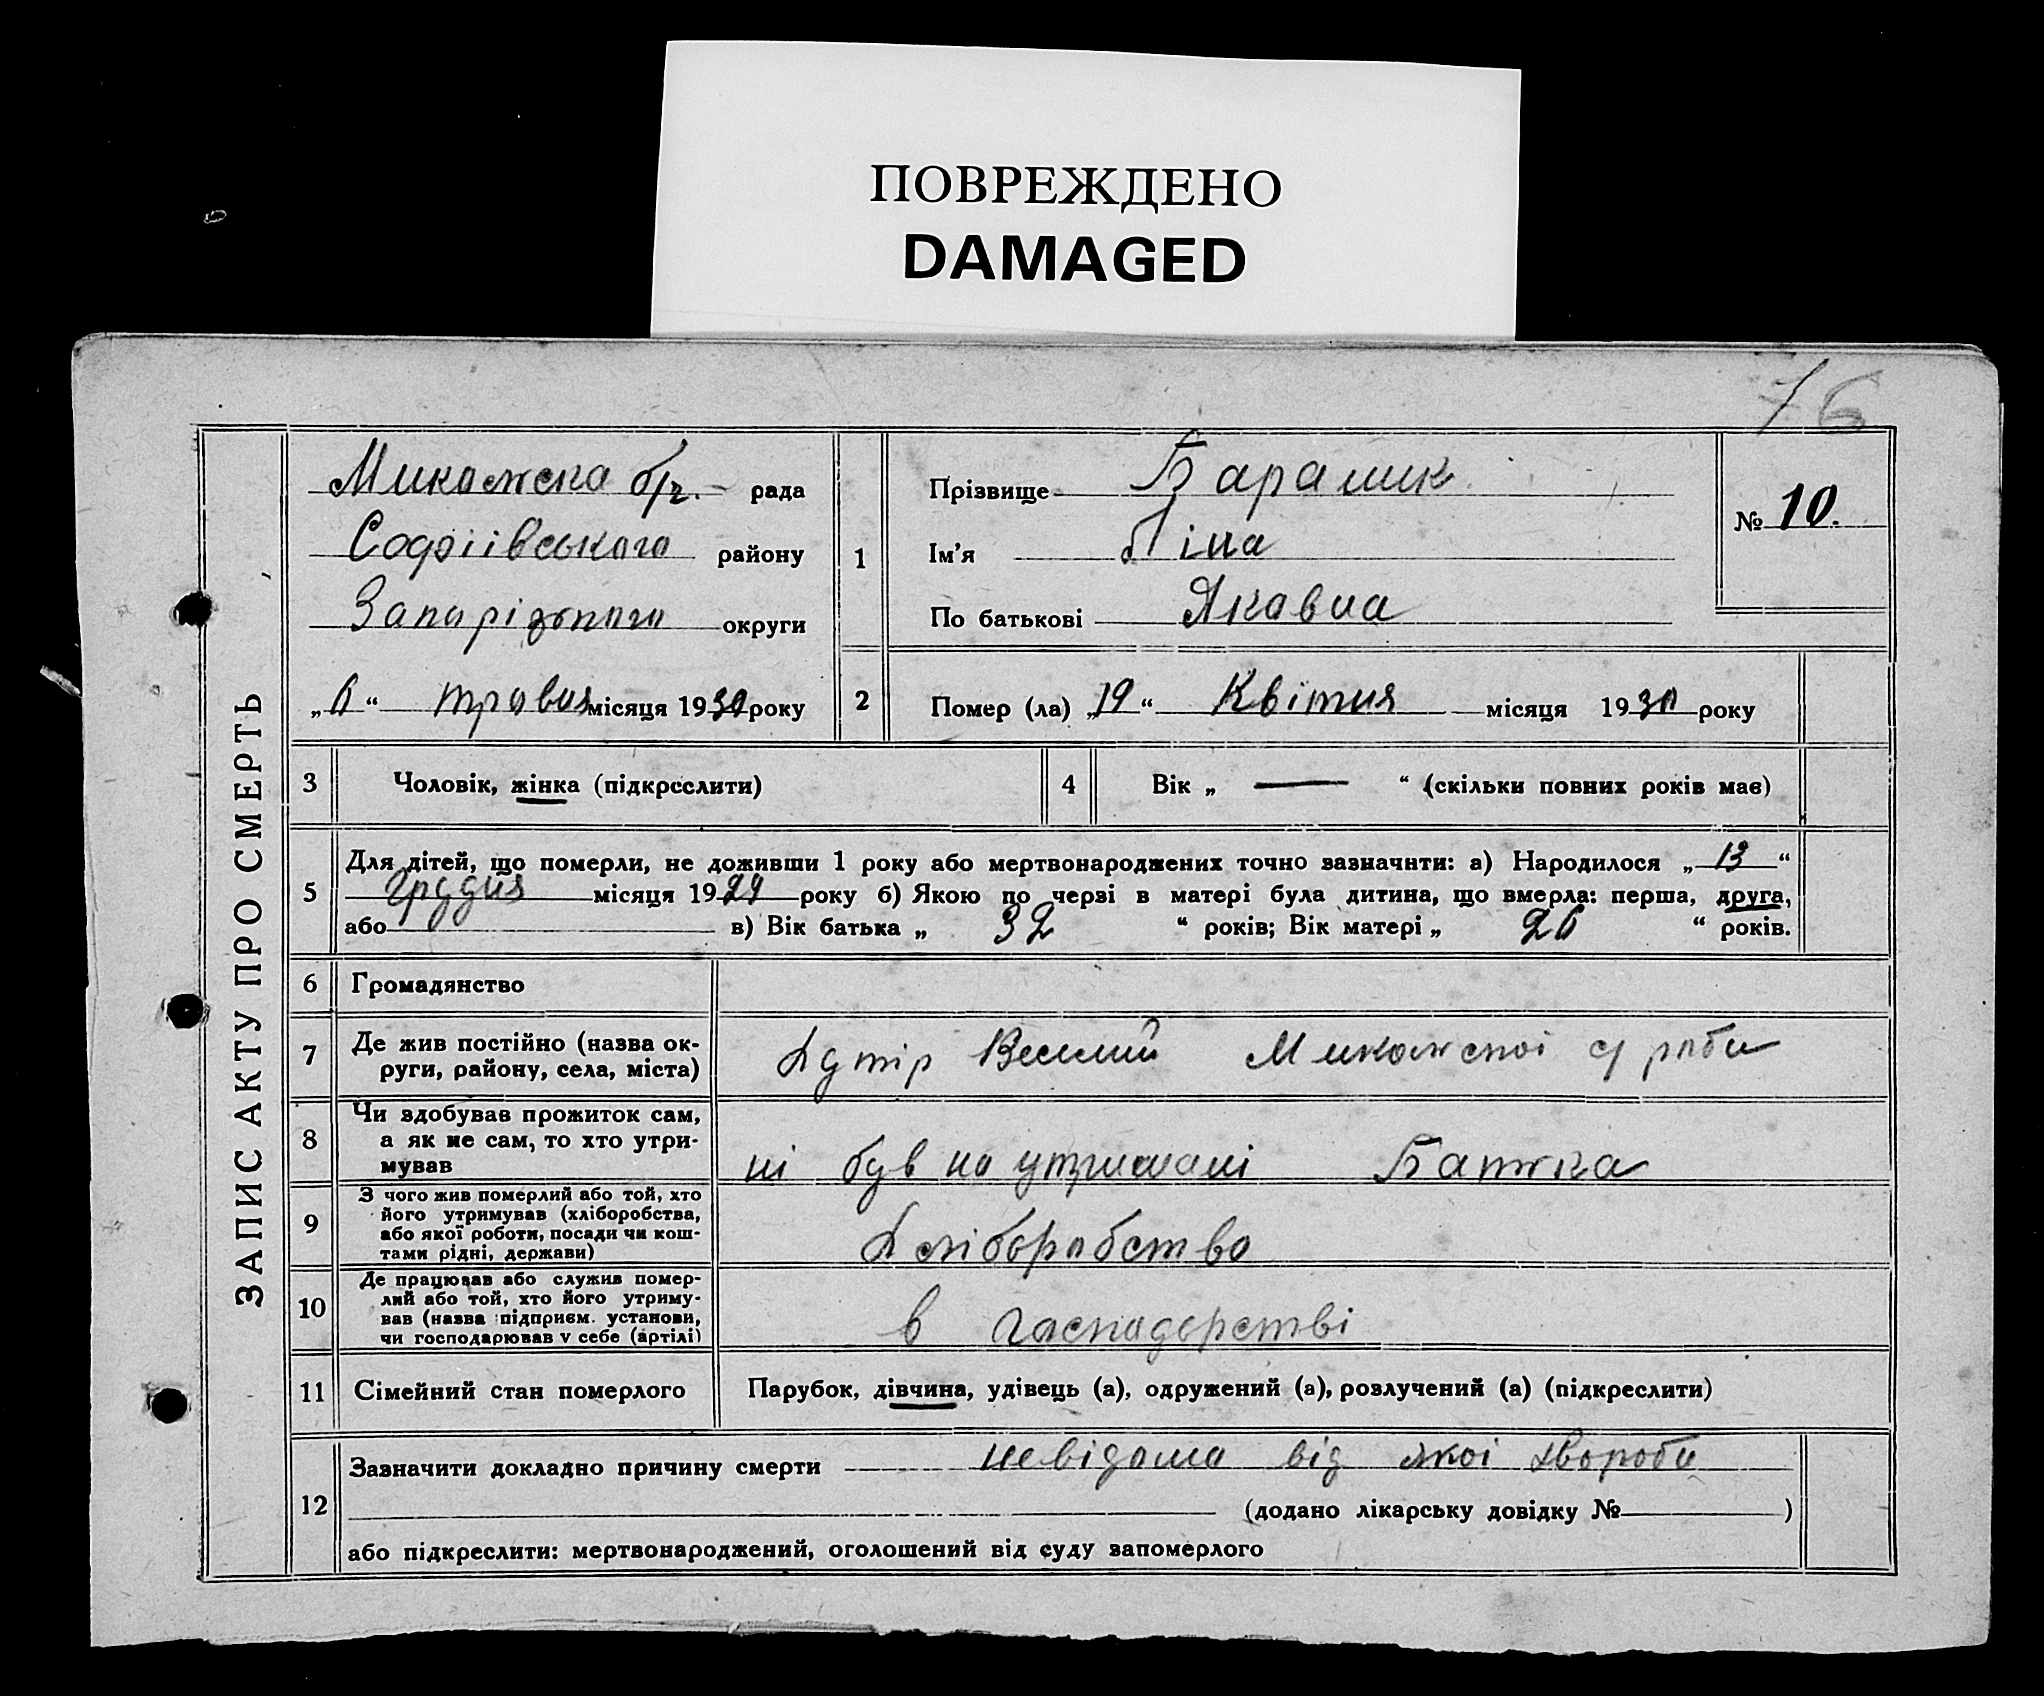 ПОВРЕЖДЕНО
DAMAGED
76
ЗАПИС АКТУ ПРО СМЕРТЬ
рада
Софіівського району
Запорізького округи
„6“ травня місяця 1930 року
1
Прізвище
Ім'я
По батькові Яковна
№ 10.
2
Помер (ла) „19“ Квітня місяця 1930 року
3
Чоловік, жінка (підкреслити)
4
Вік „ — “ (скільки повних років має)
5
Для дітей, що померли, не доживши 1 року або мертвонароджених точно зазначити: а) Народилося „13“
грудня місяця 1929 року б) Якою по черзі в матері була дитина, що вмерла: перша, друга,
або в) Вік батька „ 32 “ років; Вік матері „ 26 “ років.
6
Громадянство
7
Де жив постійно (назва ок-
руги, району, села, міста)
Хутір
8
Чи здобував прожиток сам,
а як не сам, то хто утри-
мував
ні був на утримані Батька
9
З чого жив померлий або той, хто
його утримував (хліборобства,
або якої роботи, посади чи кош-
тами рідні, держави)
Хліборобство
10
Де працював або служив помер-
лий або той, хто його утриму-
вав (назва підприєм. установи,
чи господарював у себе (артілі)
в господорстві
11
Сімейний стан померлого
Парубок, дівчина, удівець (а), одружений (а), розлучений (а) (підкреслити)
12
Зазначити докладно причину смерти невідома від якоі хвороби
(додано лікарську довідку № )
або підкреслити: мертвонароджений, оголошений від суду запомерлого